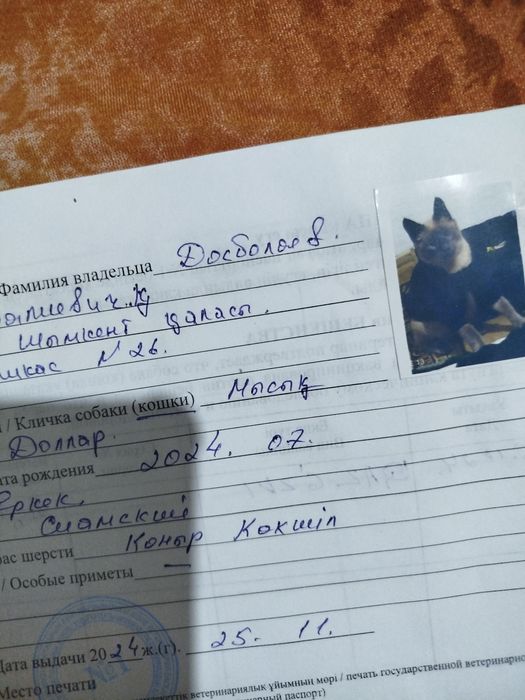 Фамилия владельца Досболаев.
Шымкент қаласы.
N 26.
/ Кличка собаки (кошки) Мысық
Доллар.
ата рождения 2024. 07.
Еркек.
Сиамский
рас шерсти Коныр Көкшіл
/ Особые приметы —
Дата выдачи 2024 ж.(г). 25. 11.
Место печати
ветеринариялық ұйымның мөрі / печать государственной ветеринарно
паспорт)